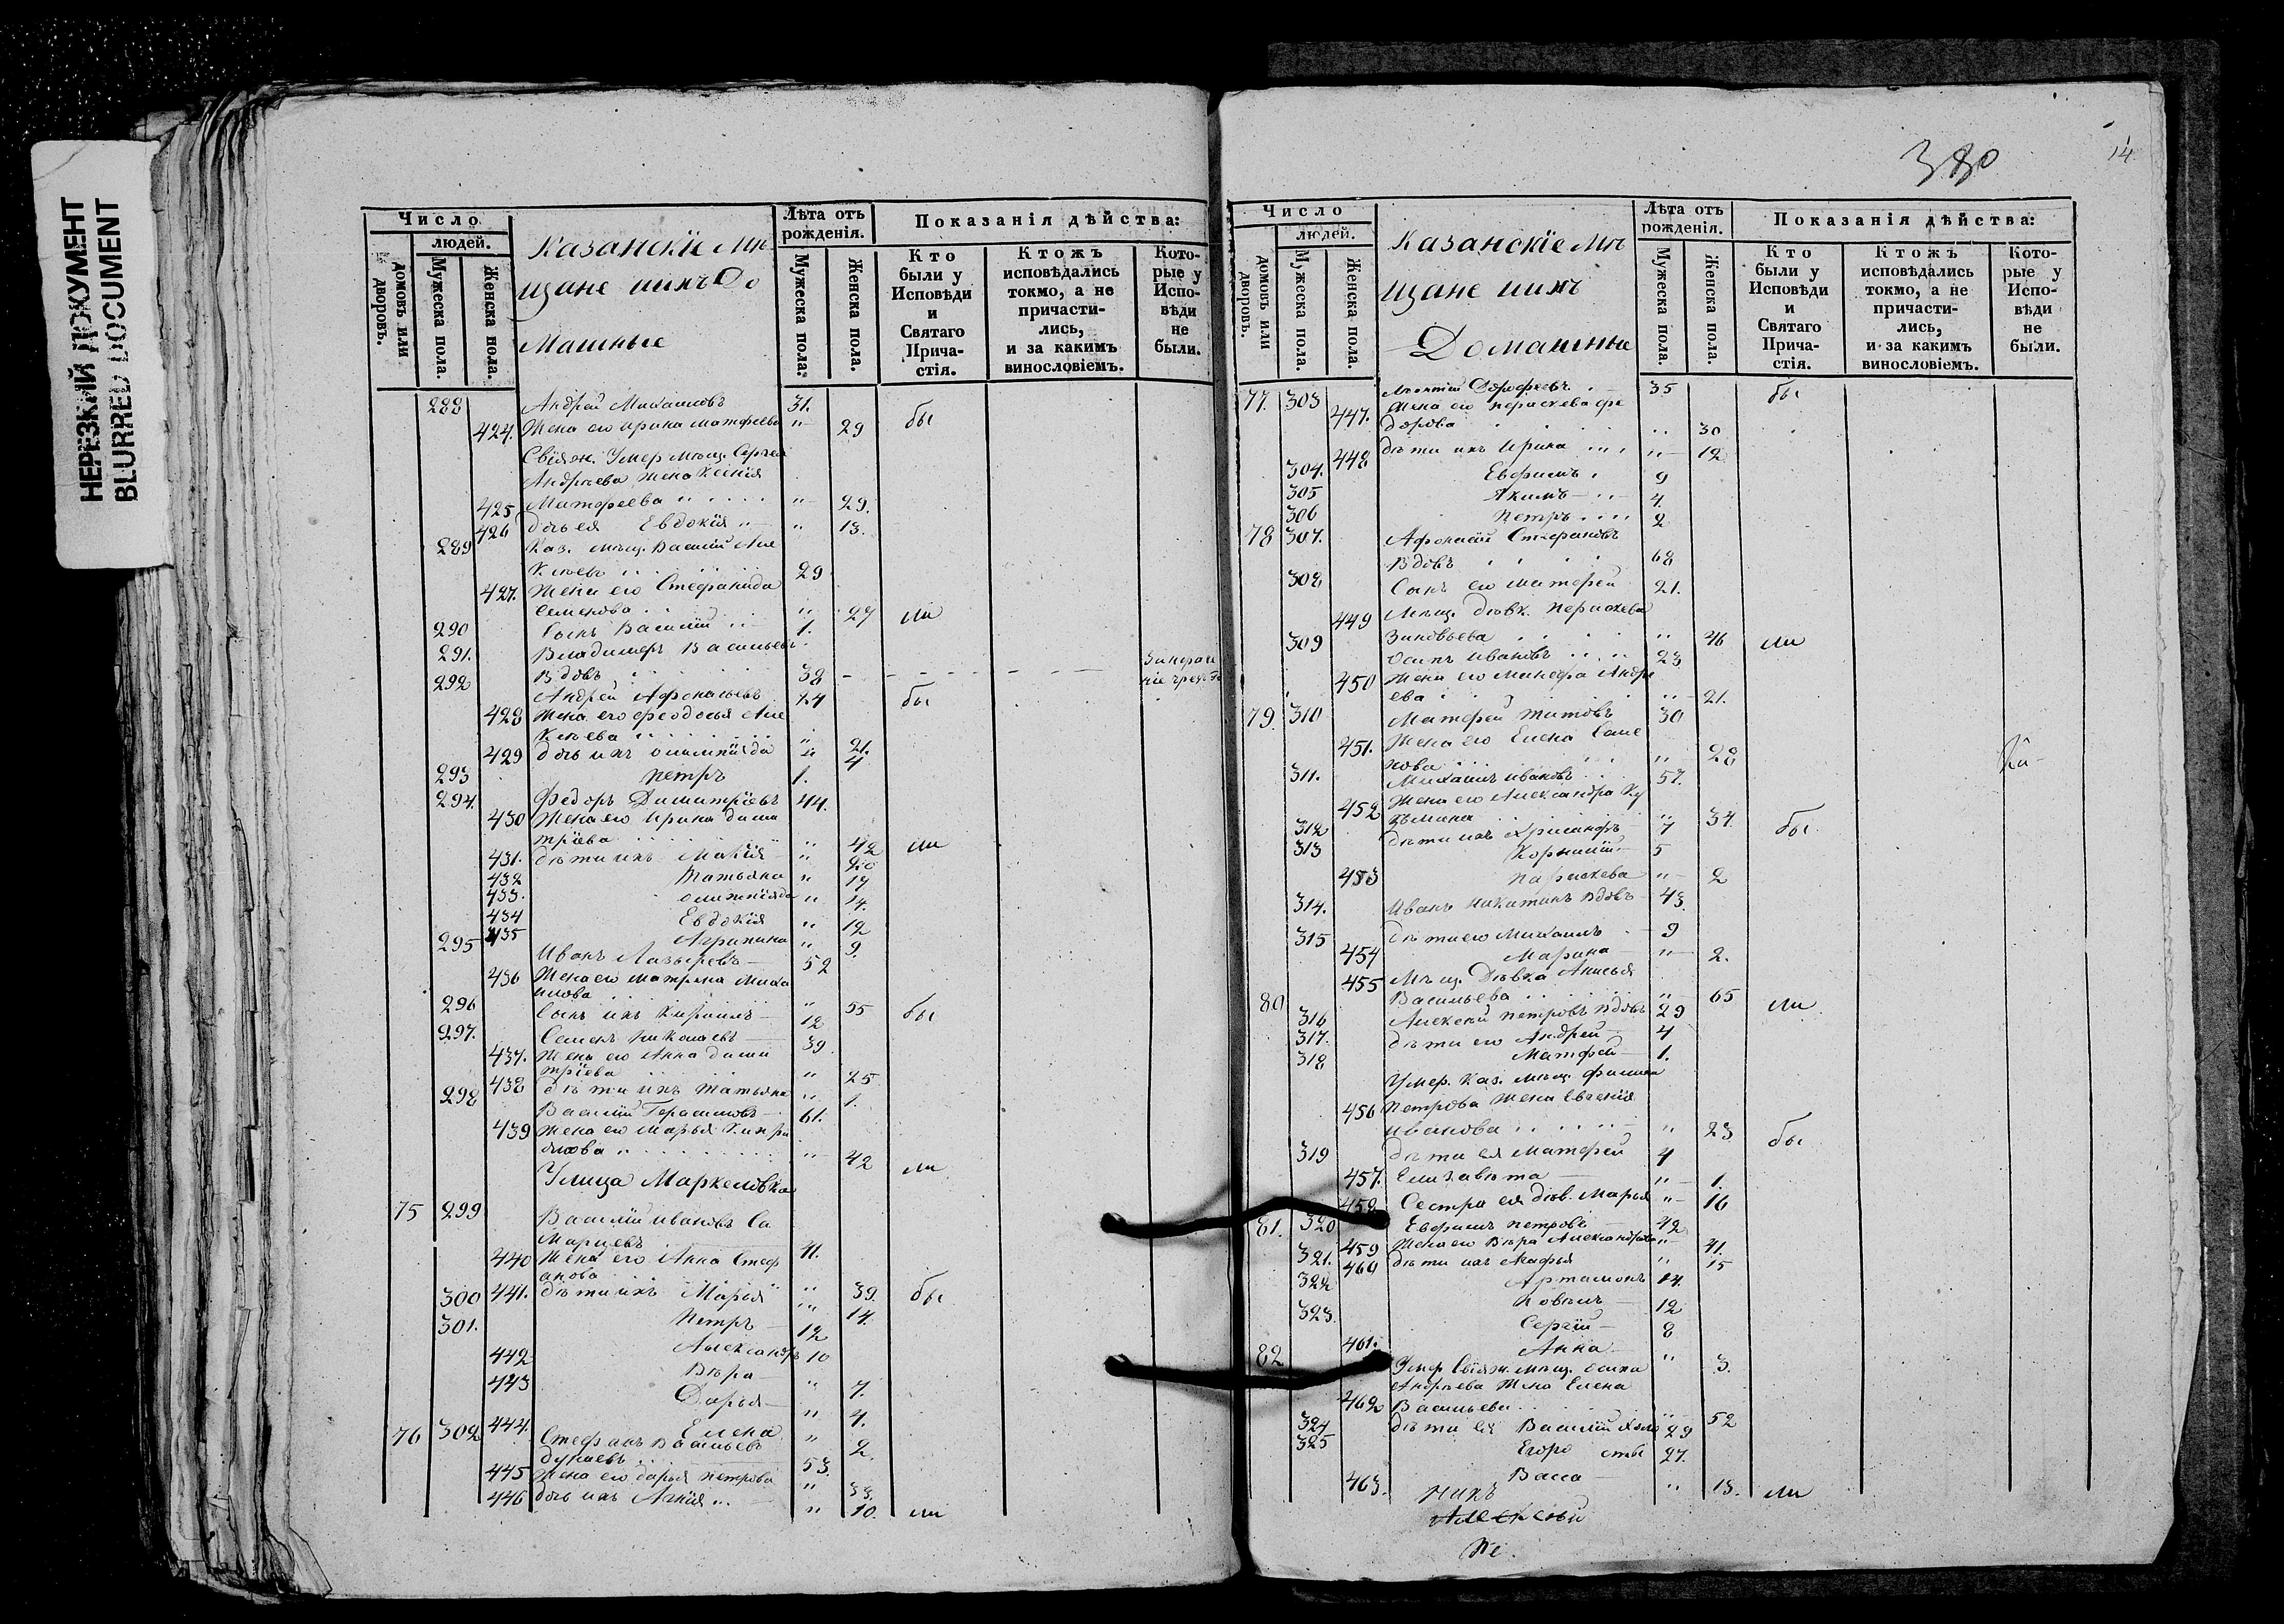 НЕРЕЗКИЙ ДОКУМЕНТ
BLURRED DOCUMENT
Число
людей.
домовъ или дворовъ.
Мужеска пола.
Женска пола.
Казанскіе Мѣ
щане ихъ До
машные
Лѣта отъ рожденія.
Мужеска пола.
Женска пола.
Показанія дѣйства:
Кто были у Исповѣди и Святаго Прича-стія.
Ктожъ исповѣдались токмо, а не причасти-лись, и за какимъ винословіемъ.
Кото-рые у Испо-вѣди не были.
288 Андрей Михаиловъ 31.
424. Жена его Ирина Матфеева " 29 бы
Свіяж. Умер. мѣщ. Сергея
Андреева жена Ксенія
425 Матфеева " 29.
426 дочь ея Евдокія " 13.
289 Каз. мѣщ. Василій Але
ксѣевъ 29
427. Жена его Стефанида
Семенова " 27 ли
290 Сынъ Василій 1.
291. Владимеръ Васильевъ
вдовъ 38
292 Андрей Афонасьевъ 24 бы
428 Жена его Феодосья Але
ксѣева " 21.
429 дочь ихъ Олимпіяда " 4
293 Петръ 1.
294. Федоръ Димитріевъ 44.
430 Жена его Ирина Дими
тріева " 42 ли
431. дѣти ихъ Марія " 20
432 Татьяна " 17
433. Олимпіяда " 14.
434 Евдокія " 12
435 Агрипина " 9.
295 Иванъ Лазыревъ 52
436 Жена его Матрена Миха
илова " 55 бы
296 Сынъ ихъ Кирилъ 12
297. Семенъ Николаевъ 39
437. Жена его Анна Дими
тріева " 25
438 дѣти ихъ Татьяна " 1.
298 Василій Герасимовъ 61.
439 Жена его Марья Кипри
янова " 42 ли
Улица Маркеловка
75 299 Василій Ивановъ Са
марцевъ 41.
440 Жена его Анна Стеф
анова " 39. бы
441. дѣти ихъ Марья " 14.
300 Петръ 12
301. Александръ 10
442 Вѣра " 7.
443 Дарья " 4.
444. Елена " 2.
76 302 Стефанъ Васильевъ
Дунаевъ 53.
445 Жена его Дарья Петрова " 33.
446 дочь ихъ Агнія " 10. ли
380
14
Число
людей.
домовъ или дворовъ.
Мужеска пола.
Женска пола.
Казанскіе Мѣ
щане ихъ
Домашные
Лѣта отъ рожденія.
Мужеска пола.
Женска пола.
Показанія дѣйства:
Кто были у Исповѣди и Святаго Прича-стія.
Ктожъ исповѣдались токмо, а не причасти-лись, и за какимъ винословіемъ.
Кото-рые у Испо-вѣди не были.
77. 303 Дорофеевъ 35 бы
447. Жена его Пераскева Фе
дорова " 30
448 дѣти ихъ Ирина " 12
304. Ефримъ 9
305 Якимъ 4.
306 Петръ 2
78 307. Афонасій Стефановъ
Вдовъ 68
308 Сынъ его Матфей 21.
449 Мѣщ. дѣвк. Пераскева
Зиновьева " 46 ли
309 Осипъ Ивановъ 23
450 Жена его Манефа Андре
ева " 21.
79. 310 Матфей Титовъ 30
451. Жена его Елена Саме
нова " 28
311. Михаилъ Ивановъ 57.
452 Жена его Александра Ку
зьмина " 34. бы
312 дѣти ихъ Хрисанфъ 7
313 Корнилій 5
453 Параскева " 2
314. Иванъ Никитинъ вдовъ 43.
315 дѣти его Михаилъ 9
454 Марина " 2.
455 Мѣщ. Дѣвка Анисья
Васильева " 65 ли
80 316 Алексей Петровъ вдовъ 29
317. дѣти его Андрей 4
318 Матфей 1.
Умер. Каз. мѣщ. Филипа
456 Петрова жена Евгенія
Иванова " 23 бы
319 дѣти ея Матфей 4
457. Елизавѣта " 1.
458 Сестра ея дѣв. Марья " 16
81. 320 Ефримъ Петровъ 42
459 Жена его Вѣра Александрова " 41.
460 дѣти ихъ Марфа " 15
321. Артамонъ 14.
322 Павелъ 12
323. Сергій 8
461. Анна " 3.
82 Умер. Свіяж. мѣщ. Осипа
Андреева жена Елена
462 Васильева " 52
324 дѣти ея Василій холо 29
325 Егоръ сты 27.
463. Васса " 13. ли